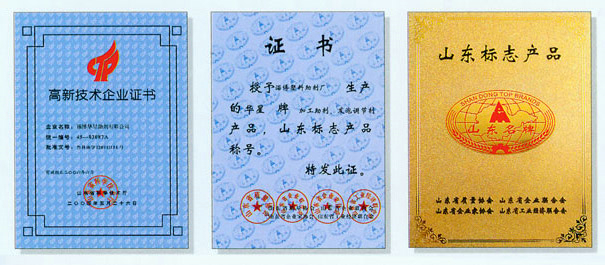 高新技术企业证书
企业名称：淄博华星助剂有限公司
统一编号：
批准文号：
山东省科学技术厅
二〇〇五年五月二十六日
证书
授予淄博塑料助剂厂 生产
的华星 牌 加工助剂、发泡调节剂
产品，山东标志产品
称号。
特发此证。
山东标志产品
SHAN DONG TOP BRANDS
山东名牌
山东省质量协会 山东省企业联合会
山东省企业家协会 山东省工业经济联合会